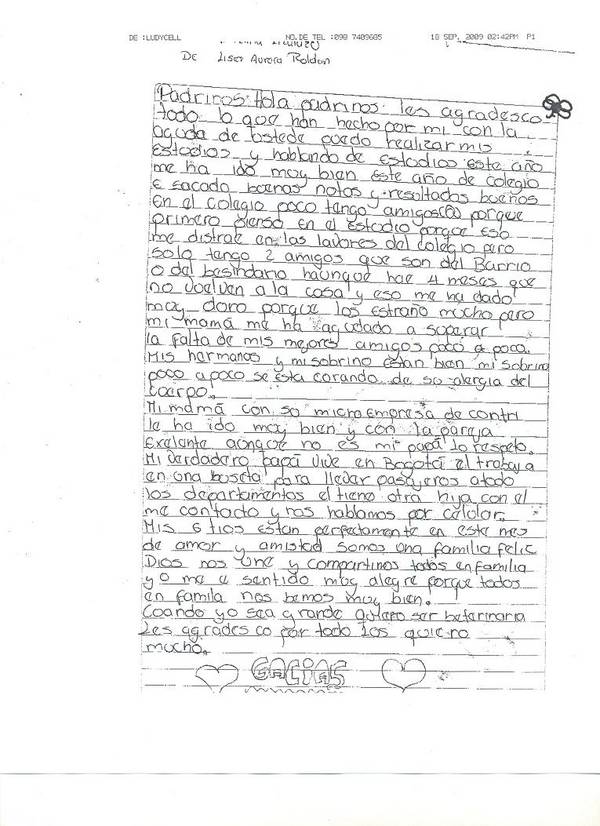 DE :LUDYCELL NO.DE TEL :098 7409685 18 SEP. 2009 02:42PM P1
De Liset Aurora Roldan
Padrinos: Hola padrinos les agradesco
todo lo que han hecho por mi con la
aguda de ustede puedo realizar mis
Estudios y hablando de estudios este año
me ha ido muy bien este año de colegio
e sacada buenas notas y resultados buenos
En el colegio poco tengo amigos(a) porque
primero pienso en el Estudio porque Eso
me distrae en las labores del colegio pero
solo tengo 2 amigos que son del Barrio
o del besindario haunque hae 4 meses que
no vuelven a la casa y eso me ha dado
muy doro porque los Estraño mucho pero
mi mamá me ha agudado a superar
la falta de mis mejores amigos poco a poco.
Mis hermanos y mi sobrino Están bien mi sobrino
poco a poco se esta corando de su alergia del
cuerpo.
Mi mamá con so micro Empresa de contri
le ha ido muy bien y con la pareja
Exelante aunque no es mi papá lo respeto.
Mi verdadero papá vive en Bogotá el trabaja
en una buseta para llevar pasajeros a todo
los departamentos el tiene otra hija con el
me contacto y nos hablamos por celular.
Mis 6 tios Están perfectamente en este mes
de amor y amistad somos una familia feliz
Dios nos une y compartimos todos en familia
y o me e sentido muy alegre porque todos
en famila nos bemos muy bien.
Cuando yo sea grande quiero ser beterinaria
Les agrades co por todo los quiero
mucho.
GACIAS